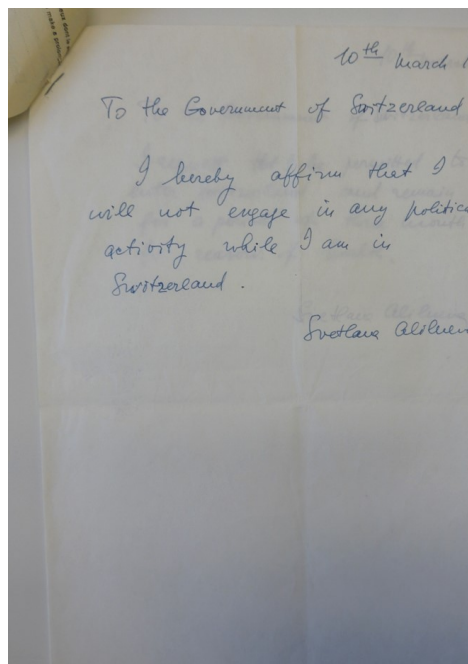 10th March
To the Government of Switzerland
I hereby affirm that I
will not engage in any politic
activity while I am in
Switzerland.
Svetlana Aliluev